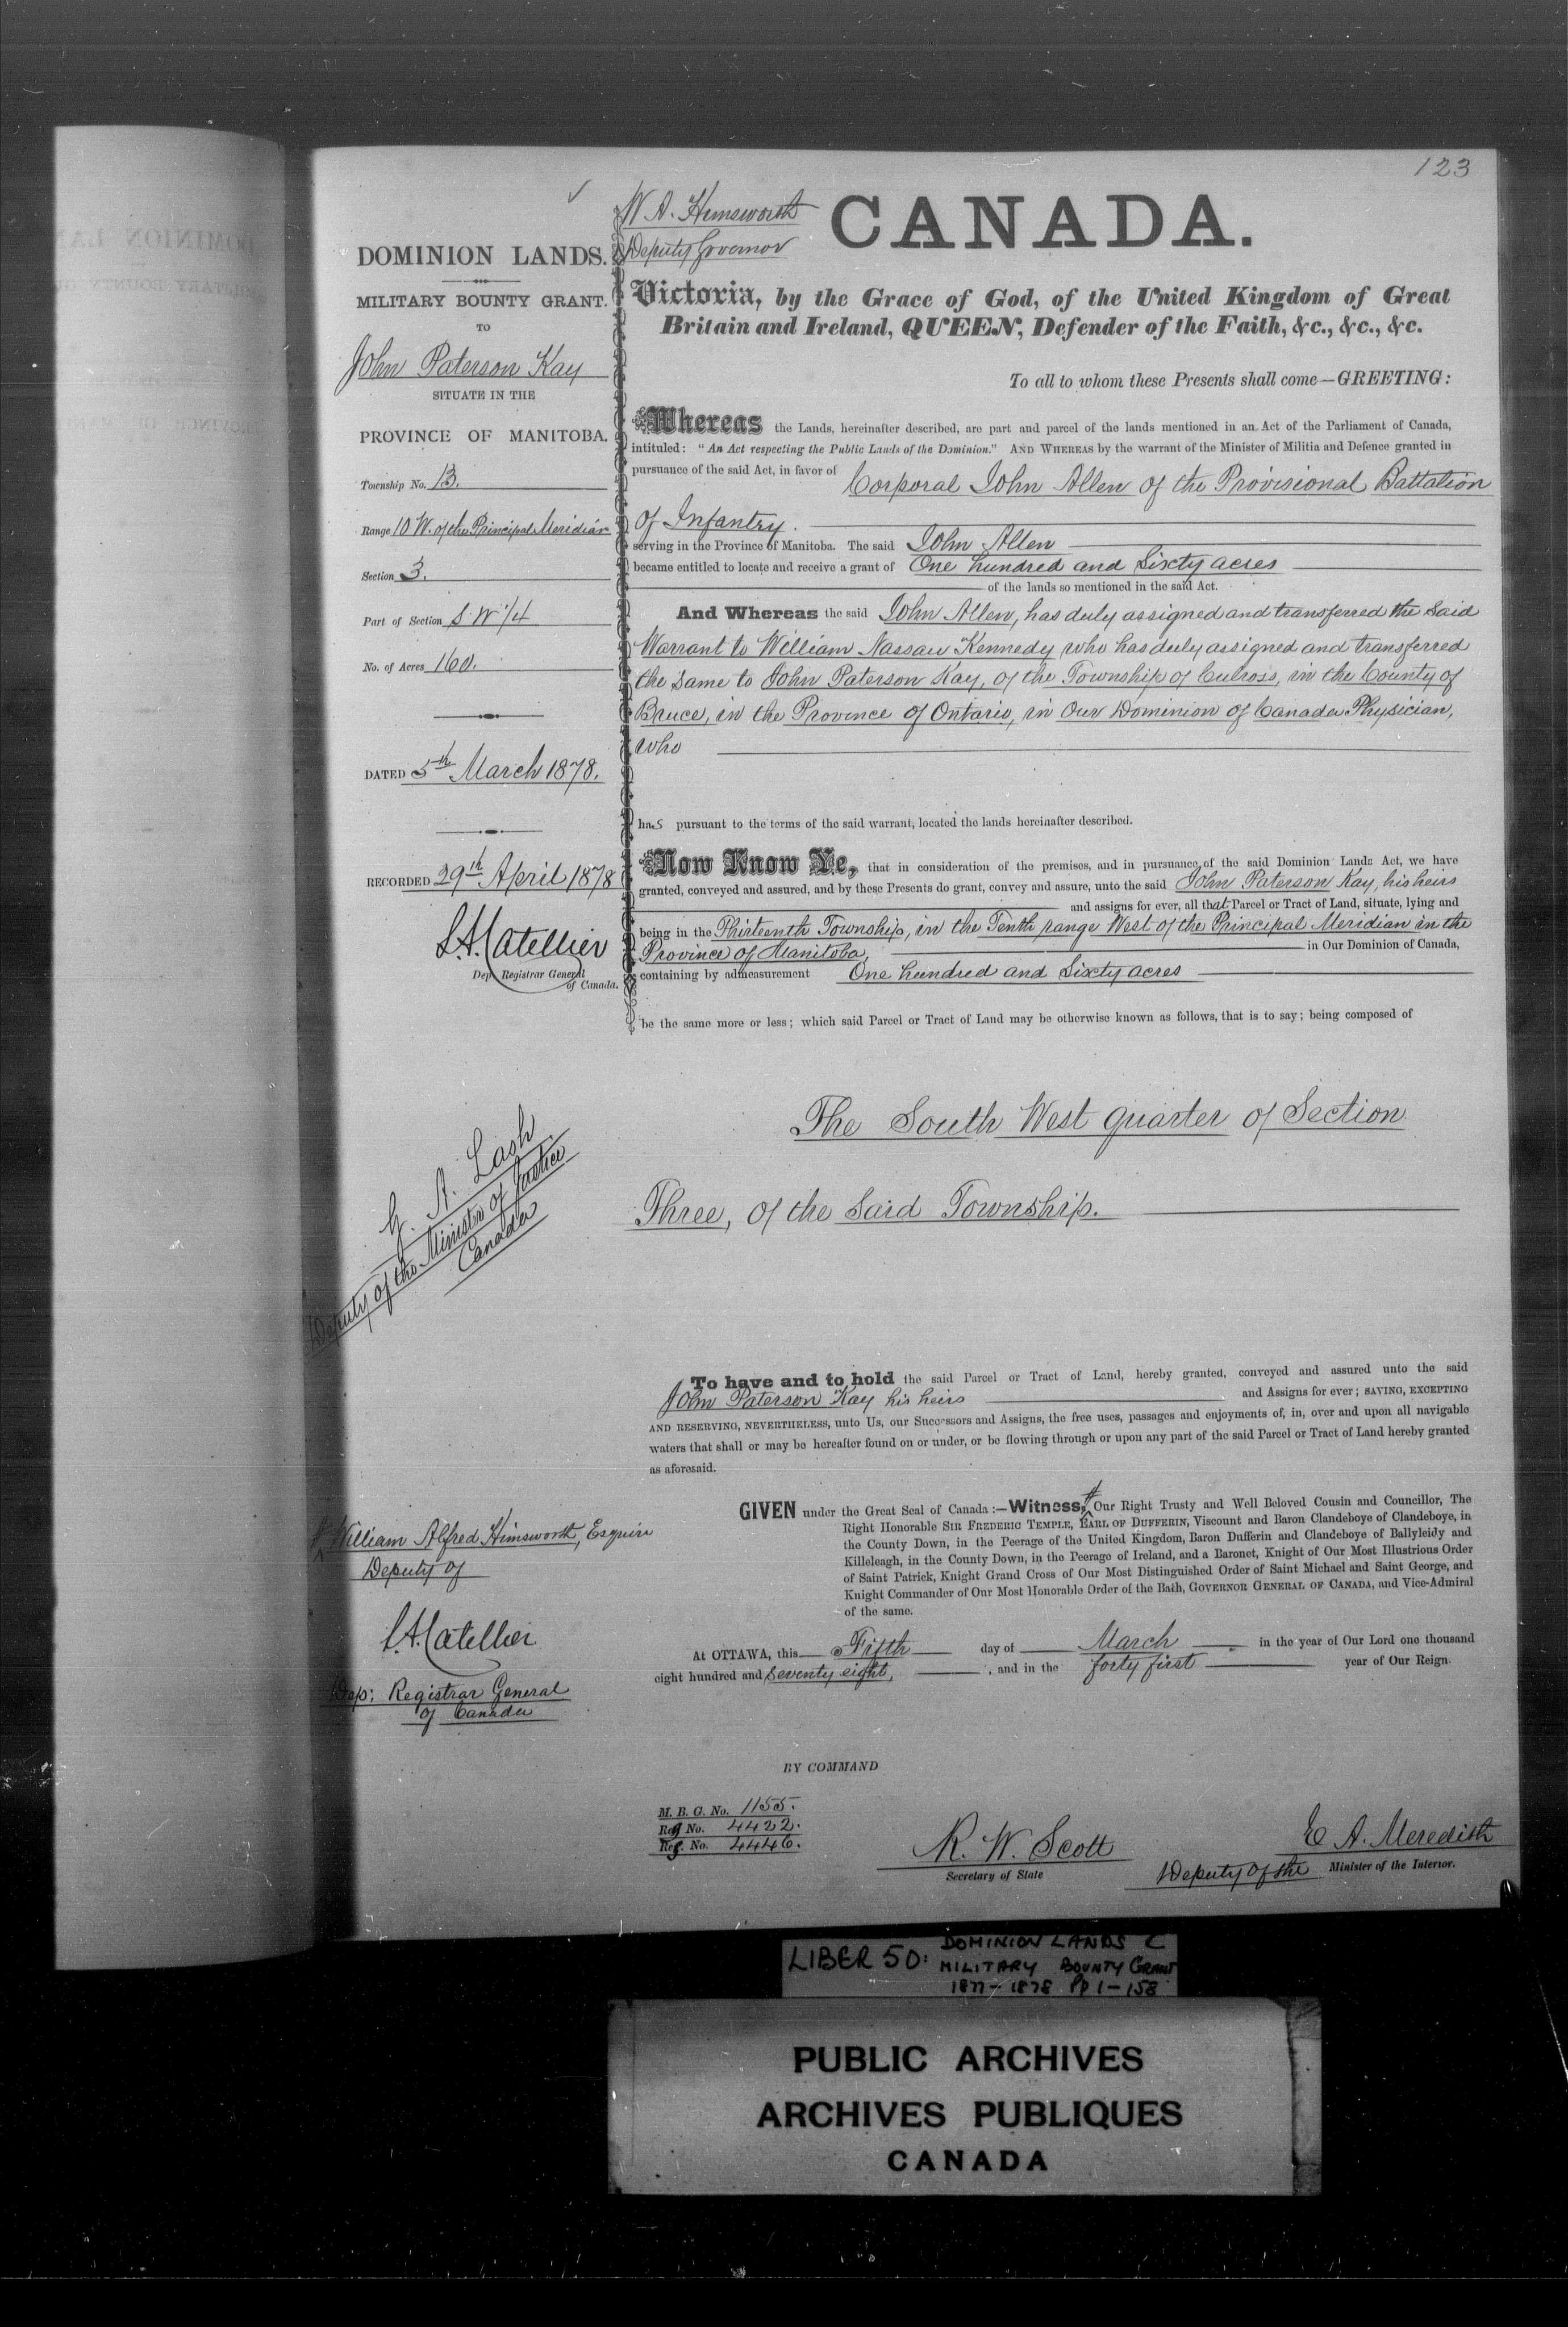 123
W A. Himsworth
Deputy Governor
CANADA.
DOMINION LANDS.
MILITARY BOUNTY GRANT.
TO
John Paterson Kay
SITUATE IN THE
PROVINCE OF MANITOBA.
Township No. 13.
Range 10 W. of the Principal Meridian
Section 3.
Part of Section S. W 1/4
No. of Acres 160.
DATED 5th March 1878.
RECORDED 29th April 1878
L.A. Catellier
Dep. Registrar General
of Canada.
Victoria, by the Grace of God, of the United Kingdom of Great
Britain and Ireland, QUEEN, Defender of the Faith, &c., &c., &c.
To all to whom these Presents shall come—GREETING:
Whereas the Lands, hereinafter described, are part and parcel of the lands mentioned in an Act of the Parliament of Canada,
intituled: "An Act respecting the Public Lands of the Dominion." AND WHEREAS by the warrant of the Minister of Militia and Defence granted in
pursuance of the said Act, in favor of Corporal John Allen of the Provisional Battalion
of Infantry.
serving in the Province of Manitoba. The said John Allen
became entitled to locate and receive a grant of One hundred and Sixty acres
of the lands so mentioned in the said Act.
And Whereas the said John Allen, has duly assigned and transferred the said
Warrant to William Nassau Kennedy who has duly assigned and transferred
the same to John Paterson Kay, of the Township of Culross, in the County of
Bruce, in the Province of Ontario, in Our Dominion of Canada Physician,
who
has pursuant to the terms of the said warrant, located the lands hereinafter described.
Now Know Ye, that in consideration of the premises, and in pursuance of the said Dominion Lands Act, we have
granted, conveyed and assured, and by these Presents do grant, convey and assure, unto the said John Paterson Kay, his heirs
and assigns for ever, all that Parcel or Tract of Land, situate, lying and
being in the Thirteenth Township, in the Tenth range West of the Principal Meridian in the
Province of Manitoba, in Our Dominion of Canada,
containing by admeasurement One hundred and Sixty acres
be the same more or less; which said Parcel or Tract of Land may be otherwise known as follows, that is to say; being composed of
The South West quarter of Section
Three, of the said Township.
A. Lash
Deputy of the Minister of Justice
Canada
To have and to hold the said Parcel or Tract of Land, hereby granted, conveyed and assured unto the said
John Paterson Kay his heirs and Assigns for ever; SAVING, EXCEPTING
AND RESERVING, NEVERTHELESS, unto Us, our Successors and Assigns, the free uses, passages and enjoyments of, in, over and upon all navigable
waters that shall or may be hereafter found on or under, or be flowing through or upon any part of the said Parcel or Tract of Land hereby granted
as aforesaid.
GIVEN under the Great Seal of Canada:—Witness, Our Right Trusty and Well Beloved Cousin and Councillor, The
Right Honorable SIR FREDERIC TEMPLE, EARL OF DUFFERIN, Viscount and Baron Clandeboye of Clandeboye, in
the County Down, in the Peerage of the United Kingdom, Baron Dufferin and Clandeboye of Ballyleidy and
Killeleagh, in the County Down, in the Peerage of Ireland, and a Baronet, Knight of Our Most Illustrious Order
of Saint Patrick, Knight Grand Cross of Our Most Distinguished Order of Saint Michael and Saint George, and
Knight Commander of Our Most Honorable Order of the Bath, GOVERNOR GENERAL OF CANADA, and Vice-Admiral
of the same.
William Alfred Himsworth, Esquire
Deputy of
L.A. Catellier
Dep: Registrar General
of Canada
At OTTAWA, this Fifth day of March in the year of Our Lord one thousand
eight hundred and seventy eight, and in the forty first year of Our Reign.
BY COMMAND
M. B. G. No. 1155.
Reg No. 4422.
Reg. No. 4446.
R. W. Scott
Secretary of State
E A. Meredith
Deputy of the Minister of the Interior.
LIBER 50: DOMINION LANDS
MILITARY BOUNTY GRANT
1877-1878 Pp 1-158
PUBLIC ARCHIVES
ARCHIVES PUBLIQUES
CANADA